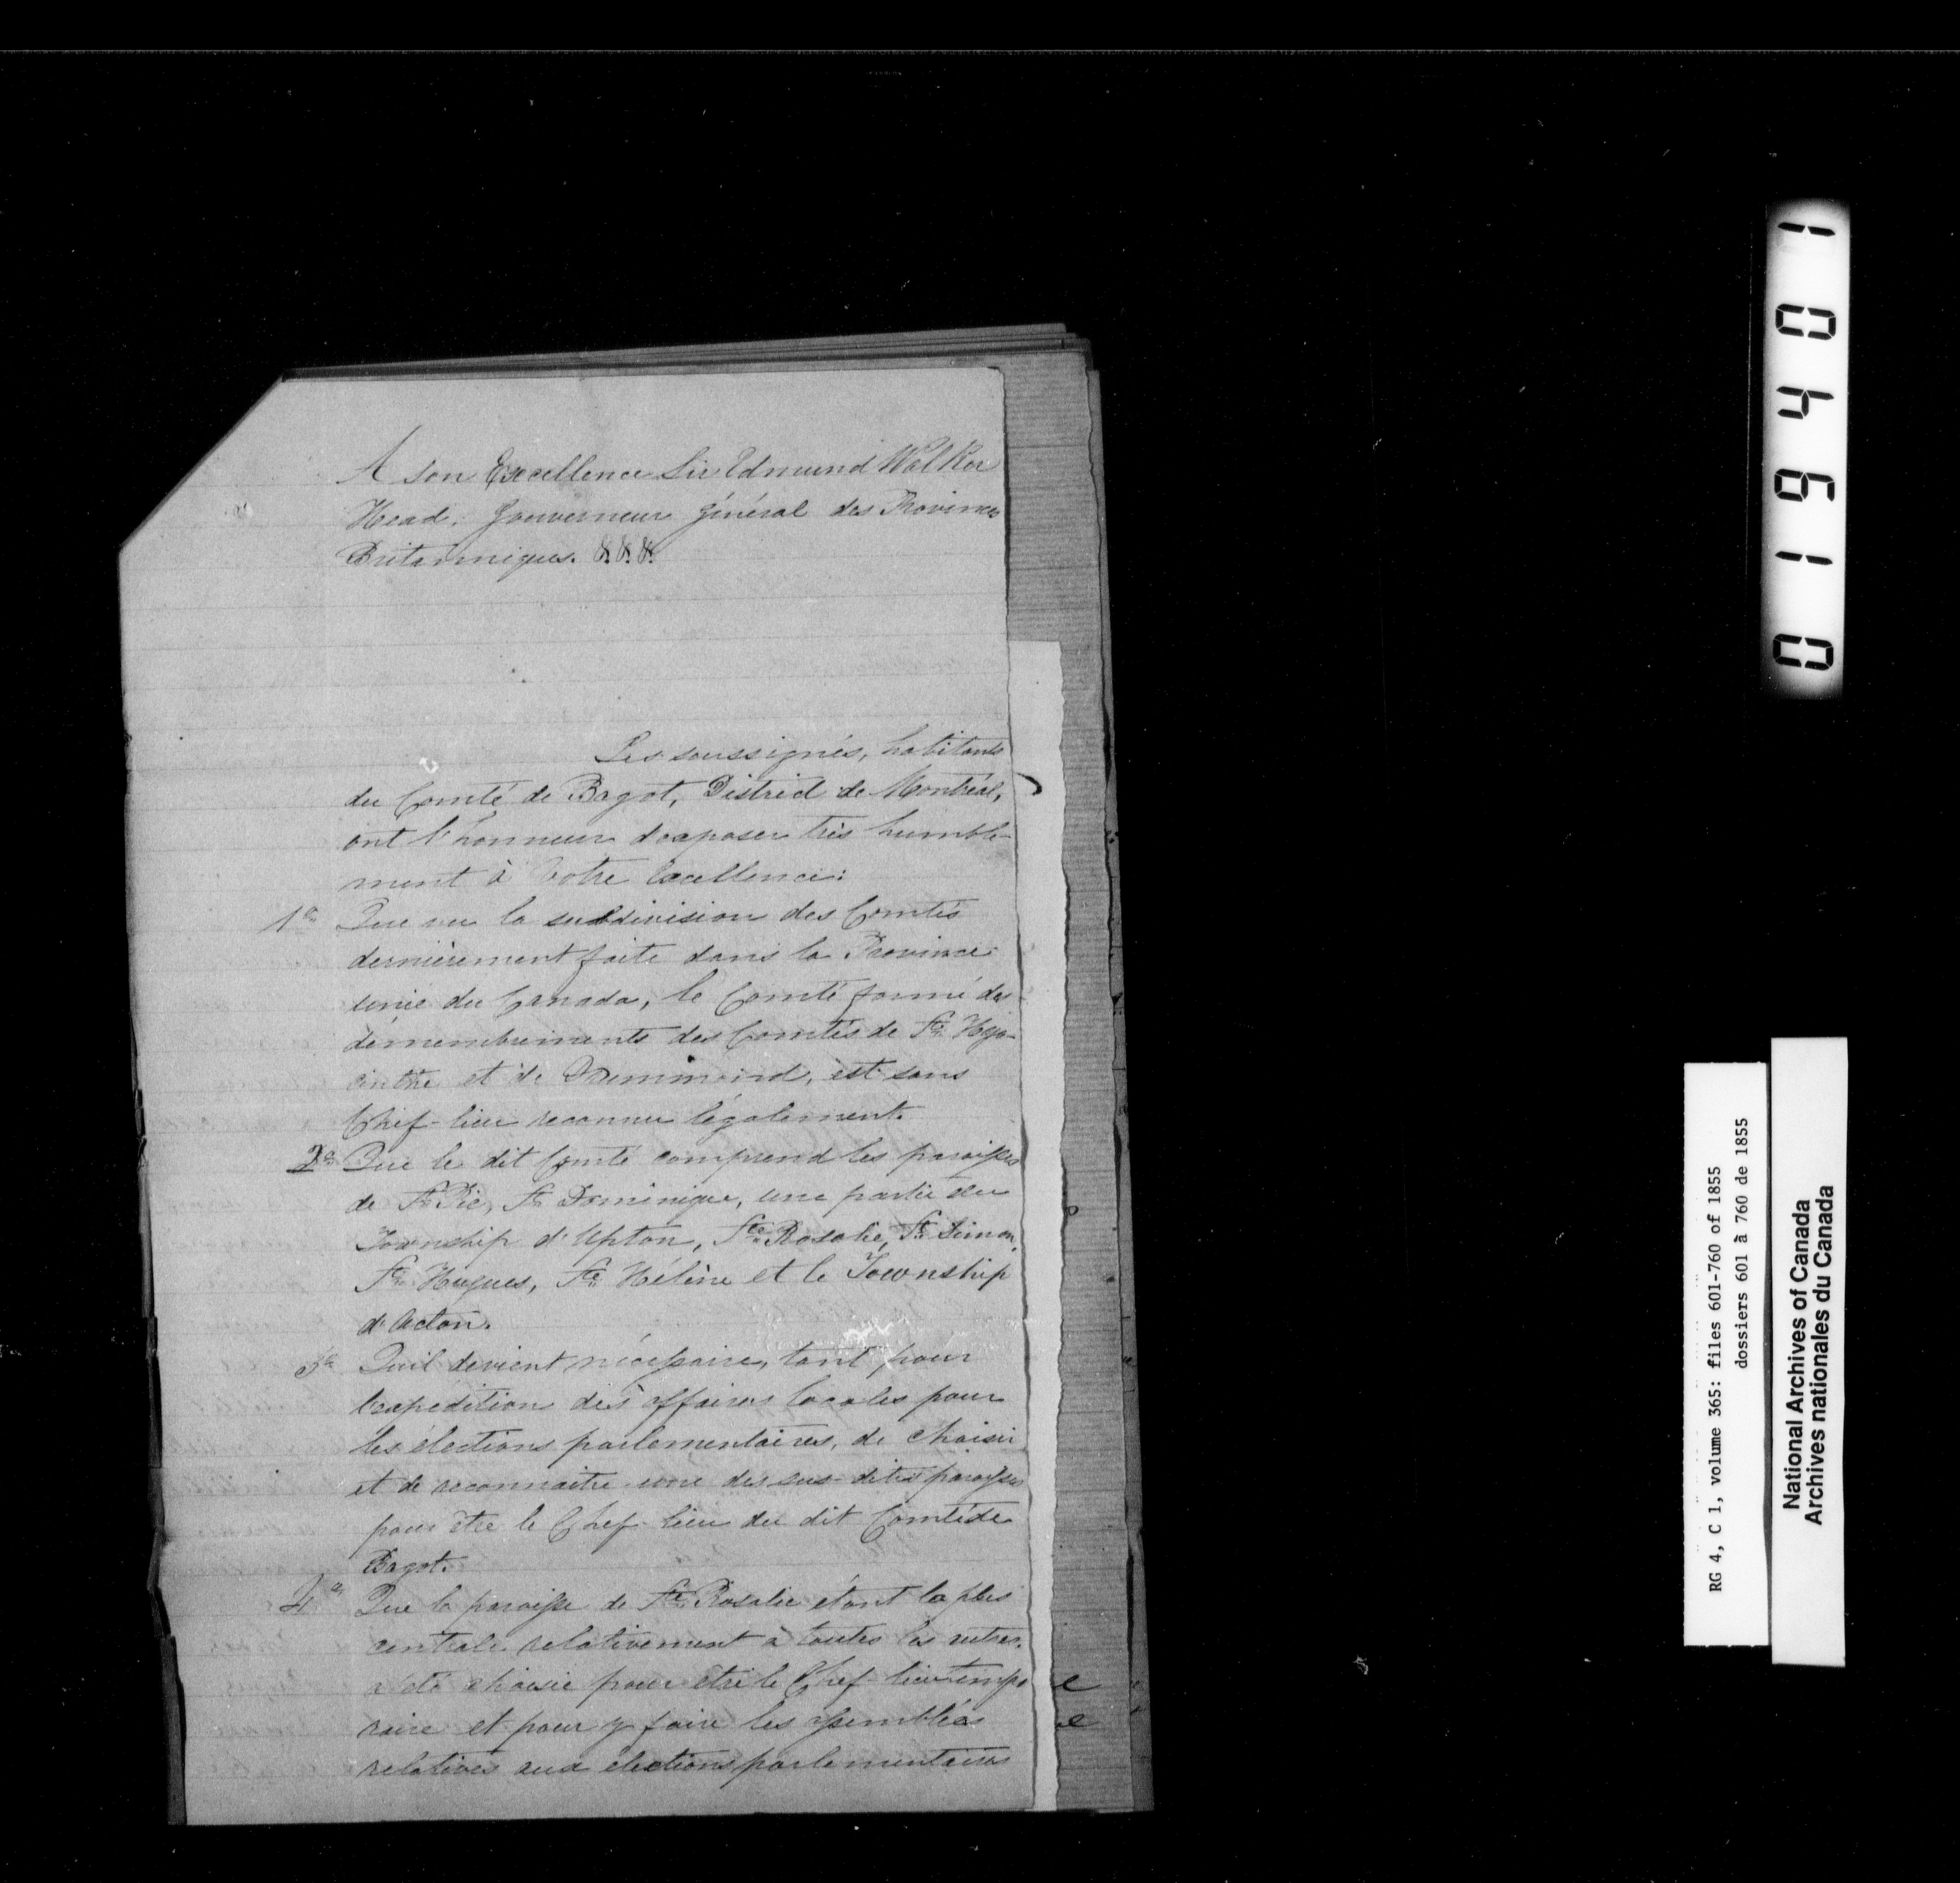 A son Excellence Sir Edmund Walker
Head, Gouverneur Général des Provinces
Britanniques. &.&.&.
Les soussignés, habitants
du Comté de Bagot, District de Montréal,
ont l'honneur d'exposer très humble-
ment à Votre Excellence:
1o Que vu la subdivision des Comtés
dernièrement faite dans la Province
unie du Canada, le Comté formé des
démembrements des Comtés de St. Hya-
cinthe et de Drummond, est sans
Chef-lieu reconnu légalement.
2o Que le dit Comté comprend les paroisses
de St. Pie, St. Dominique, une partie du
Township d'Upton, Ste. Rosalie, St. Simon,
St. Hugues, Ste. Hélène et le Township
d'Acton.
3o Qu'il devient nécessaire, tant pour
l'expédition des affaires locales pour
les élections parlementaires, de choisir
et de reconnaitre une des sus-dites paroisses
pour être le Chef-lieu du dit Comté de
Bagot.
4o Que la paroisse de Ste. Rosalie étant la plus
centrale relativement à toutes les autres,
a été choisie pour être le Chef-lieu tempo
raire et pour y faire les assemblées
relatives aux élections parlementaires
019401
RG 4, C 1, volume 365: files 601-760 of 1855
dossiers 601 à 760 de 1855
National Archives of Canada
Archives nationales du Canada